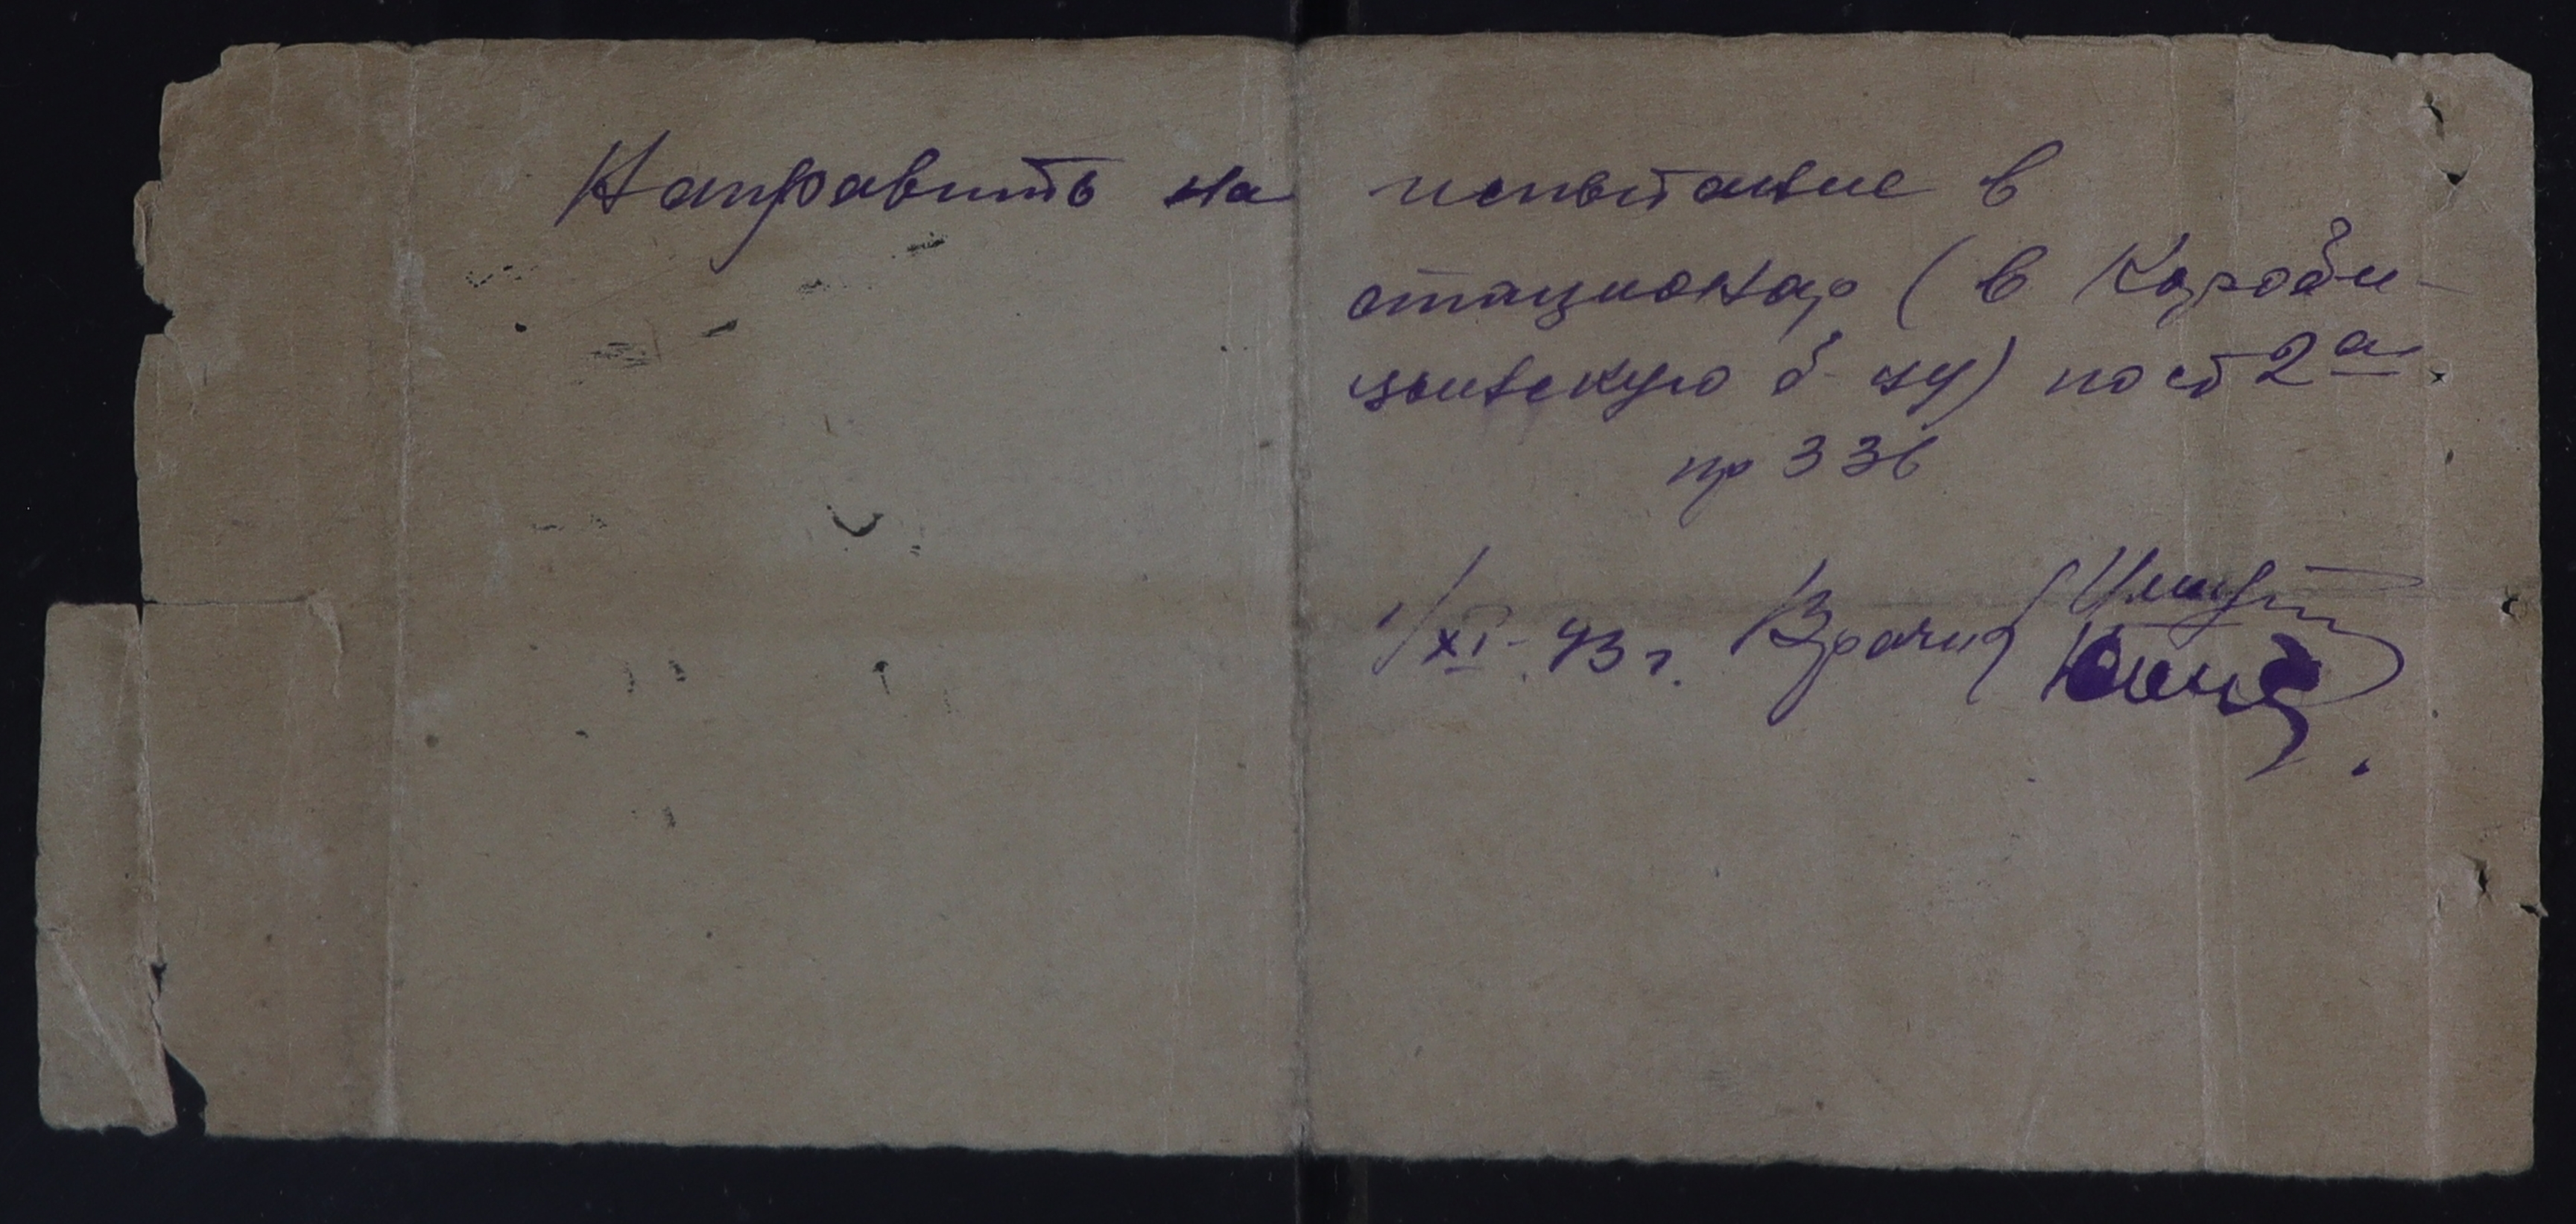 Направить на испытание в
стационар (в Короби-
цынскую б-цу) пост 2а
пр 336
1/XI-43 г. Врачи